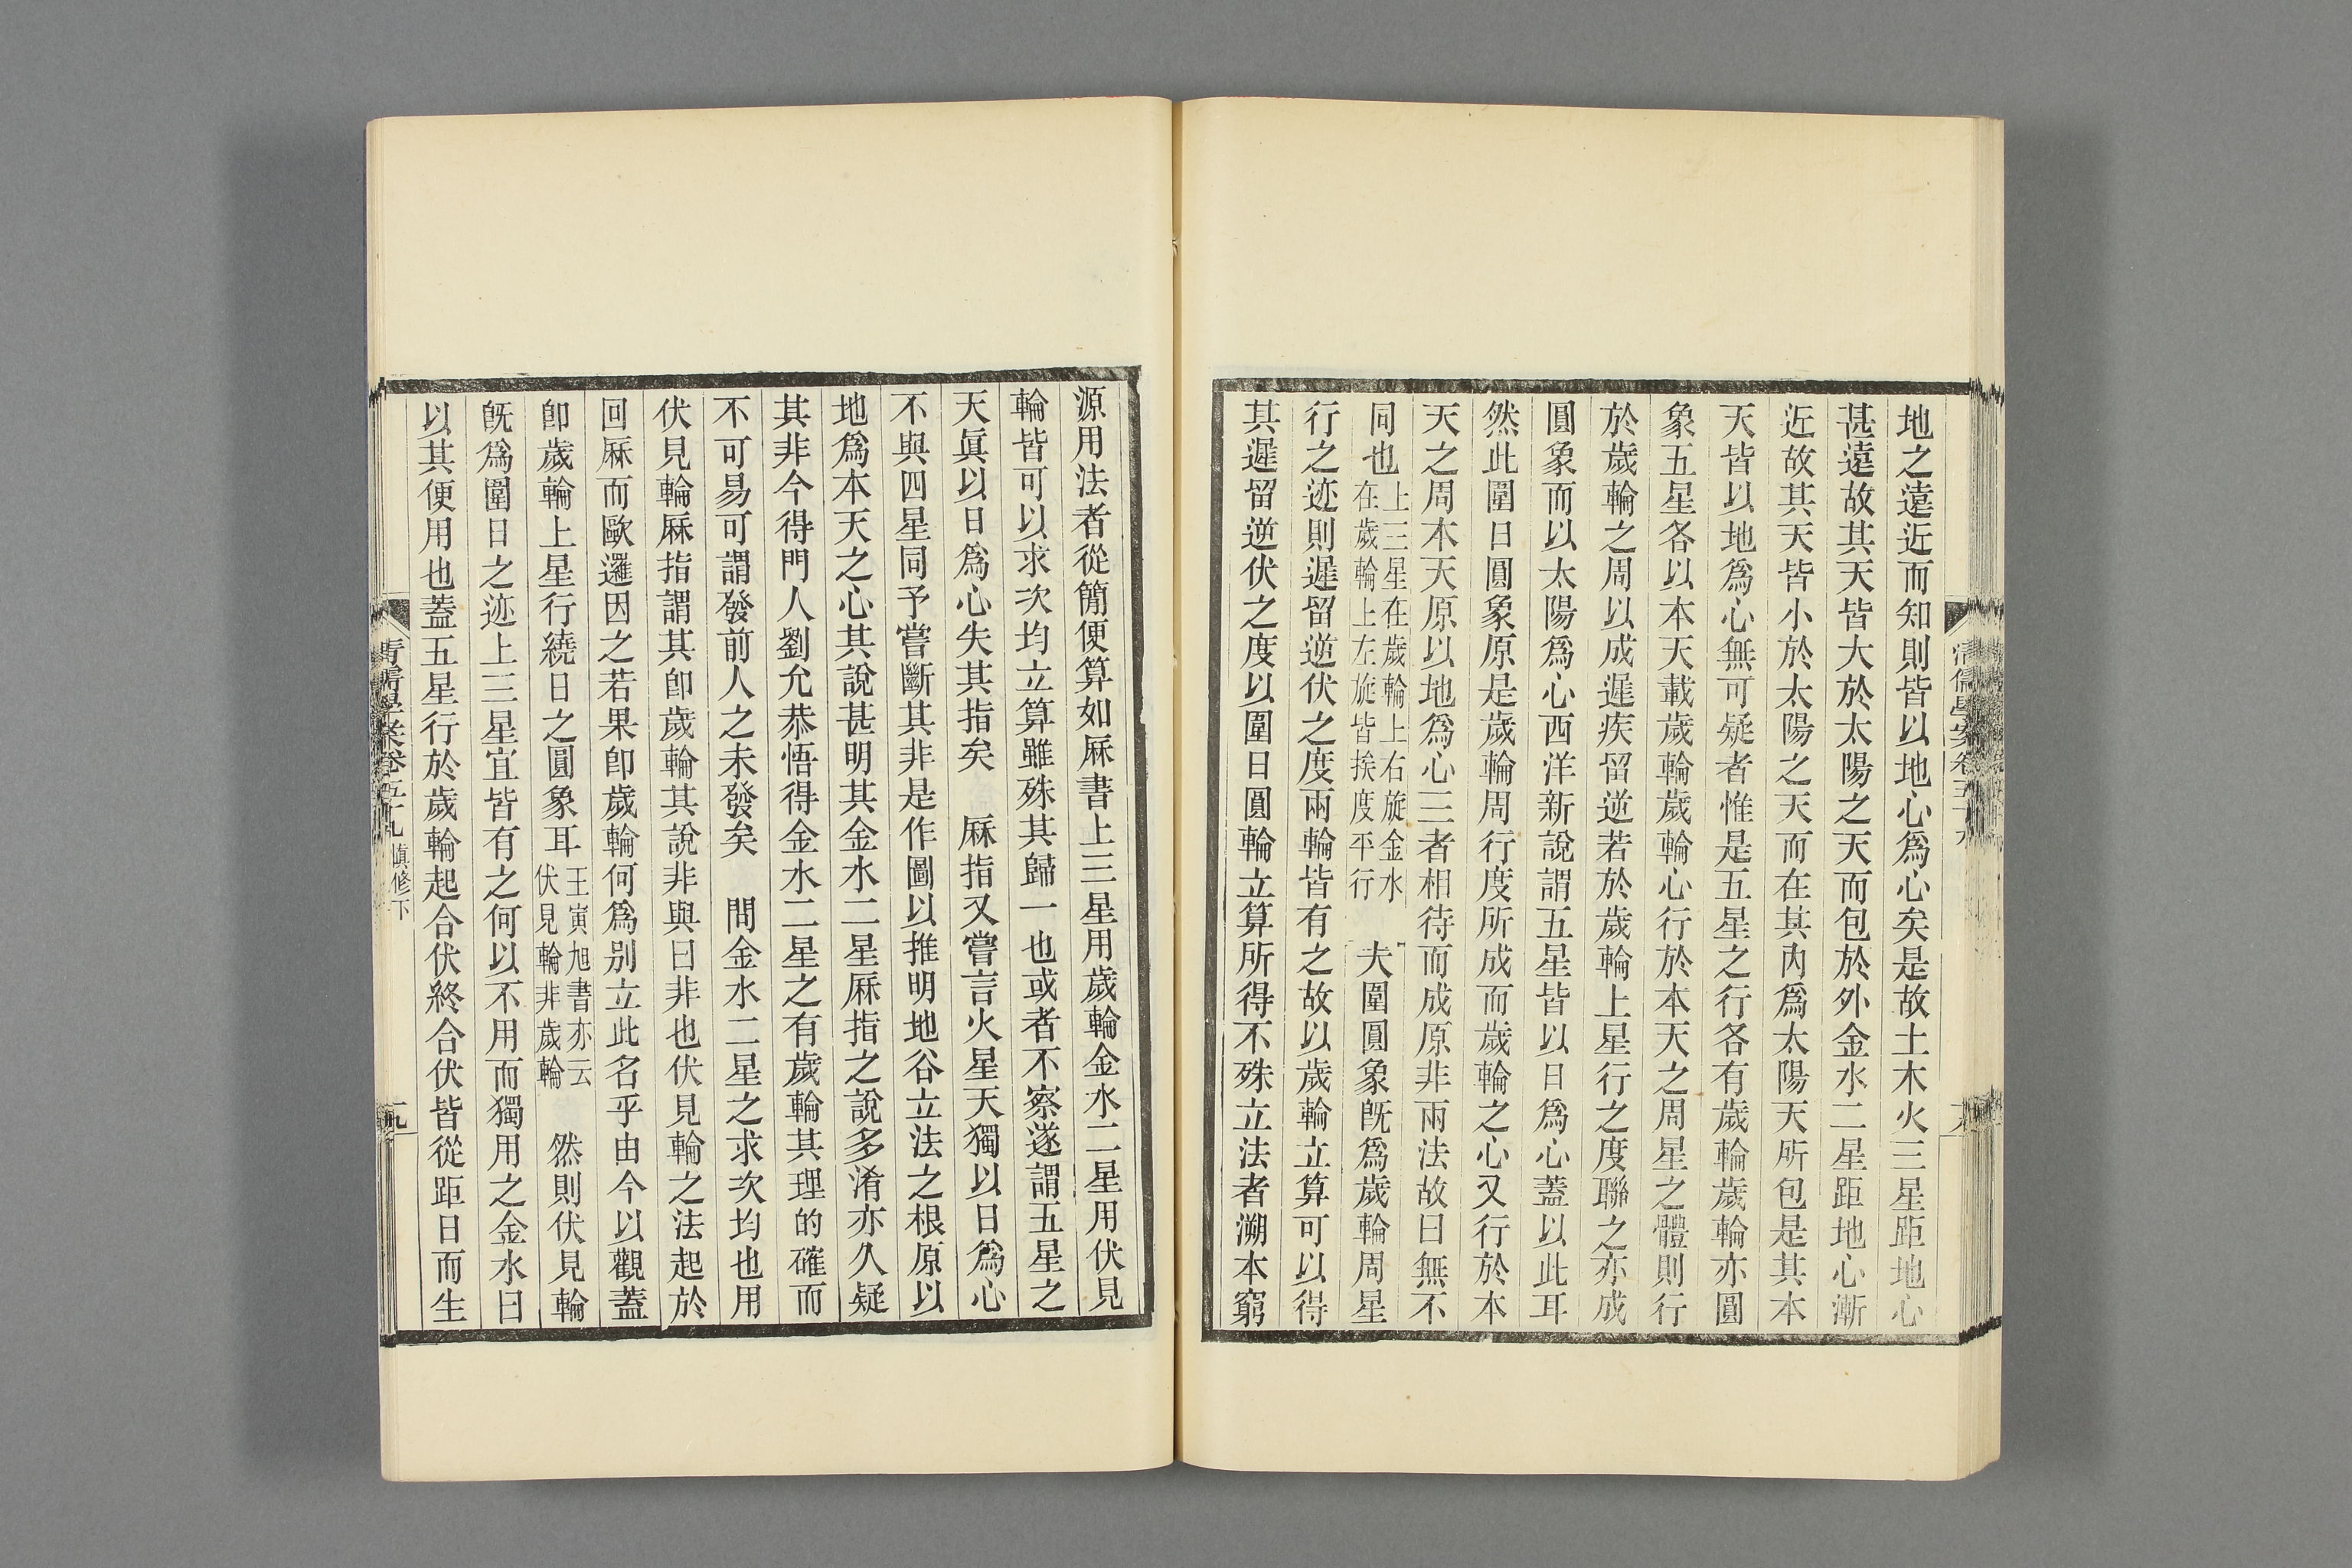 地之遠近而知則皆以地心爲心矣是故土木火三星距地心
甚遠故其天皆大於太陽之天而包於外金水二星距地心漸
近故其天皆小於太陽之天而在其內爲太陽天所包是其本
天皆以地爲心無可疑者惟是五星之行各有歲輪歲輪亦圓
象五星各以本天載歲輪歲輪心行於本天之周星之體則行
於歲輪之周以成遲疾留逆若於歲輪上星行之度聯之亦成
圓象而以太陽爲心西洋新說謂五星皆以日爲心蓋以此耳
然此圍日圓象原是歲輪周行度所成而歲輪之心又行於本
天之周本天原以地爲心三者相待而成原非兩法故曰無不
同也上三星在歲輪上右旋金水在歲輪上左旋皆挨度平行　夫圍圓象旣爲歲輪周星
行之迹則遲留逆伏之度兩輪皆有之故以歲輪立算可以得
其遲留逆伏之度以圍日圓輪立算所得不殊立法者溯本窮
源用法者從簡便算如厤書上三星用歲輪金水二星用伏見
輪皆可以求次均立算雖殊其歸一也或者不察遂謂五星之
天眞以日爲心失其指矣　厤指又嘗言火星天獨以日爲心
不與四星同予嘗斷其非是作圖以推明地谷立法之根原以
地爲本天之心其說甚明其金水二星厤指之說多淆亦久疑
其非今得門人劉允恭悟得金水二星之有歲輪其理的確而
不可易可謂發前人之未發矣　問金水二星之求次均也用
伏見輪厤指謂其卽歲輪其說非與曰非也伏見輪之法起於
回厤而歐邏因之若果卽歲輪何爲別立此名乎由今以觀蓋
卽歲輪上星行繞日之圓象耳王寅旭書亦云伏見輪非歲輪　然則伏見輪
旣爲圍日之迹上三星宜皆有之何以不用而獨用之金水曰
以其便用也蓋五星行於歲輪起合伏終合伏皆從距日而生
愼修下